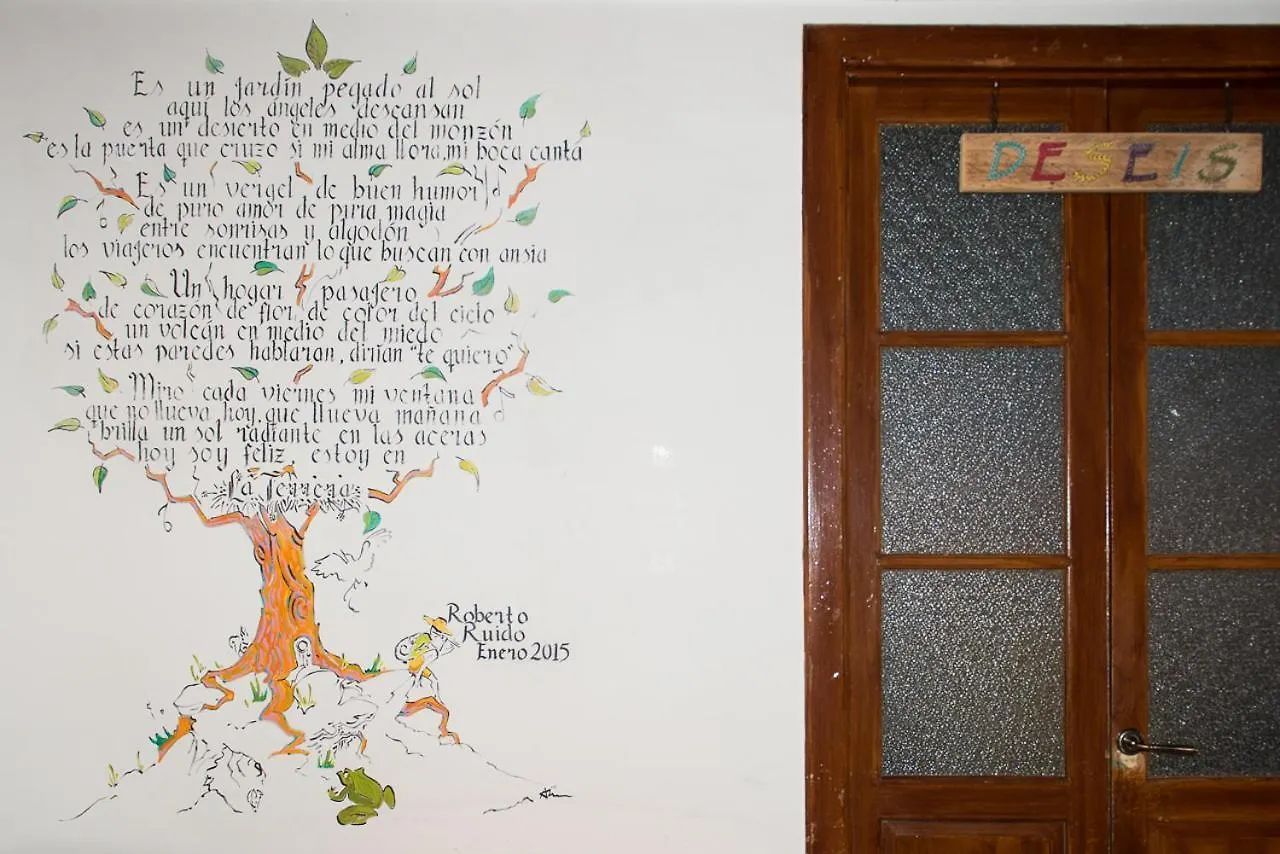 Es un jardín pegado al sol
aquí los ángeles descansan
es un desierto en medio del monzón
es la puerta que cruzo si mi alma llora, mi boca canta
Es un vergel de buen humor
de puro amor de pura magia
entre sonrisas y algodón
los viajeros encuentran lo que buscan con ansia
Un hogar pasajero
de corazón de flor, de color del cielo
un volcán en medio del miedo
si estas paredes hablaran, dirían "te quiero"
Miro cada viernes mi ventana
que no llueva hoy, que llueva mañana
brilla un sol radiante en las aceras
hoy soy feliz, estoy en
La
Roberto
Ruido
Enero 2015
DESEIS